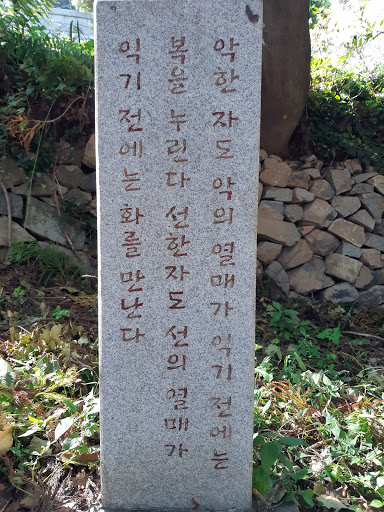 악한 자도 악의 열매가 익기 전에는
복을 누린다 선한자도 선의 열매가
익기 전에는 화를 만난다